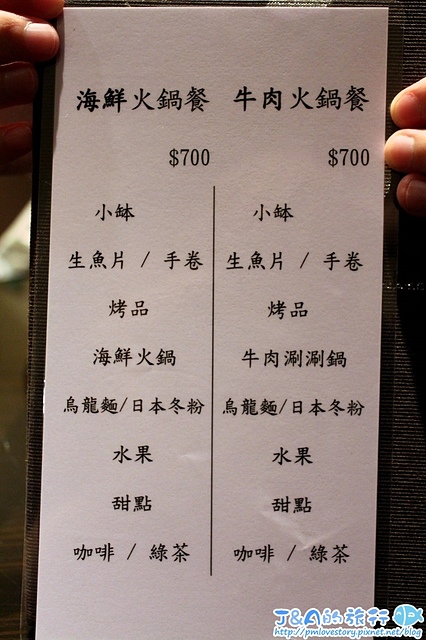 海鮮火鍋餐 牛肉火鍋餐
$700 $700
小缽 小缽
生魚片 / 手卷 生魚片 / 手卷
烤品 烤品
海鮮火鍋 牛肉涮涮鍋
烏龍麵/日本冬粉 烏龍麵/日本冬粉
水果 水果
甜點 甜點
咖啡 / 綠茶 咖啡 / 綠茶
J&A的旅行
http://pmlovestory.pixnet.net/blog